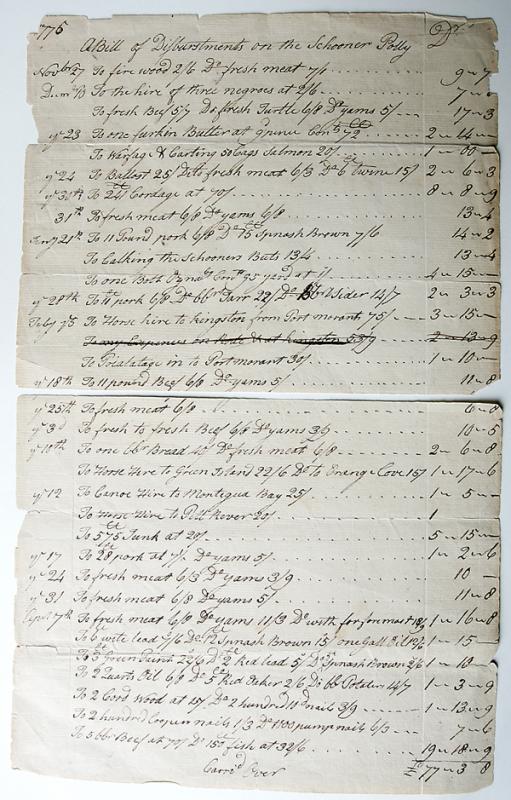 1775
A Bill of Disburstments on the Schooner Polly Dr
Novbr 27 To fire wood 2/6 Do fresh meat 7/1 9 ~ 7
To the hire of three negroes at 2/6 7 ~ 6
To fresh Beef 5/7 Do fresh Turtle 6/8 Do yams 5/ 17 ~ 3
ye 23 To one farkin Butter at 2 ~ 14 ~
To Warfag & Carting 50 bags Salmon 20/ 1 ~ 00 ~
ye 24 To Ballost 25/ Do to fresh meat 6/3 Do 6 lb Twine 15/ 2 ~ 6 ~ 3
To 24 lb Cordage at 70/. 8 ~ 8 ~ 9
31th To fresh meat 6/8 Do yams 6/8 13 ~ 4
21th To 11 Pound pork 6/8 Do 15 lb Spnash Brown 7/6 14 ~ 2
To Calking the Schooners Buts 13/4 13 ~ 4
To one Bolt 95 yards at 1/ 4 ~ 15 ~
ye 28th To 11 lb pork 6/8 Do bbr Tarr 22/ Do bbl Sider 14/7 2 ~ 3 ~ 3
To Horse hire to kingston from Port morant 75/ 3 ~ 15 ~
To my Expences on Rode & at kingston 53/9 2 ~ 13 ~ 9
To Polatage in to Port morant 30/ 1 ~ 10 ~
ye 18th To 11 pound Beef 6/8 Do yams 5/ 11 ~ 8
ye 25th To fresh meat 6/8 6 ~ 8
ye 3d To fresh to fresh Beef 6/8 Do yams 3/9 10 ~ 5
ye 10th To one bbr Bread 40/ Do fresh meat 6/8 2 ~ 6 ~ 8
To Horse Hire to Green Island 22/6 Do to Orange Cove 15/ 1 ~ 17 ~ 6
ye 12 To Canoe Hire to Montegua Bay 25/ 1 ~ 5 ~
To Horse Hire to Rever 20/ 1
To 575 lb Junk at 20/ 5 ~ 15 ~
ye 17 To 28 lb pork at 7/. Do yams 5/ 1 ~ 2 ~ 6
ye 24 To fresh meat 6/3 Do yams 3/9 10 ~
ye 31 To fresh meat 6/8 Do yams 5/ 11 ~ 8
7th To fresh meat 6/8 Do yams 11/3 Do with for formast 1 ~ 16 ~ 8
To 6 wite lead 7/6 Do 12 Spnash Brown 15/ one Gall Oil 1 ~ 15 ~
To 3 lb Green Paint Do 2 Red lead 5/ Do Spnash Brown 2/6 1 ~ 10
To 2 Quarts Oil 6/9 Do 5 lb Red Oaker 2/6 Do bbr Potatos 14/7 1 ~ 3 ~ 9
To 2 Cord Wood at 15/ Do 2 hundred 10d nails 3/9 1 ~ 13 ~ 9
To 2 hundred Cooper nails 1/3 Do 1100 pump nails 6/3 7 ~ 6
To 5 bbr Beef at 70/ Do 150 lb fish at 32/6 19 ~ 18 ~ 9
Carrd Over £ 77 ~ 3 8